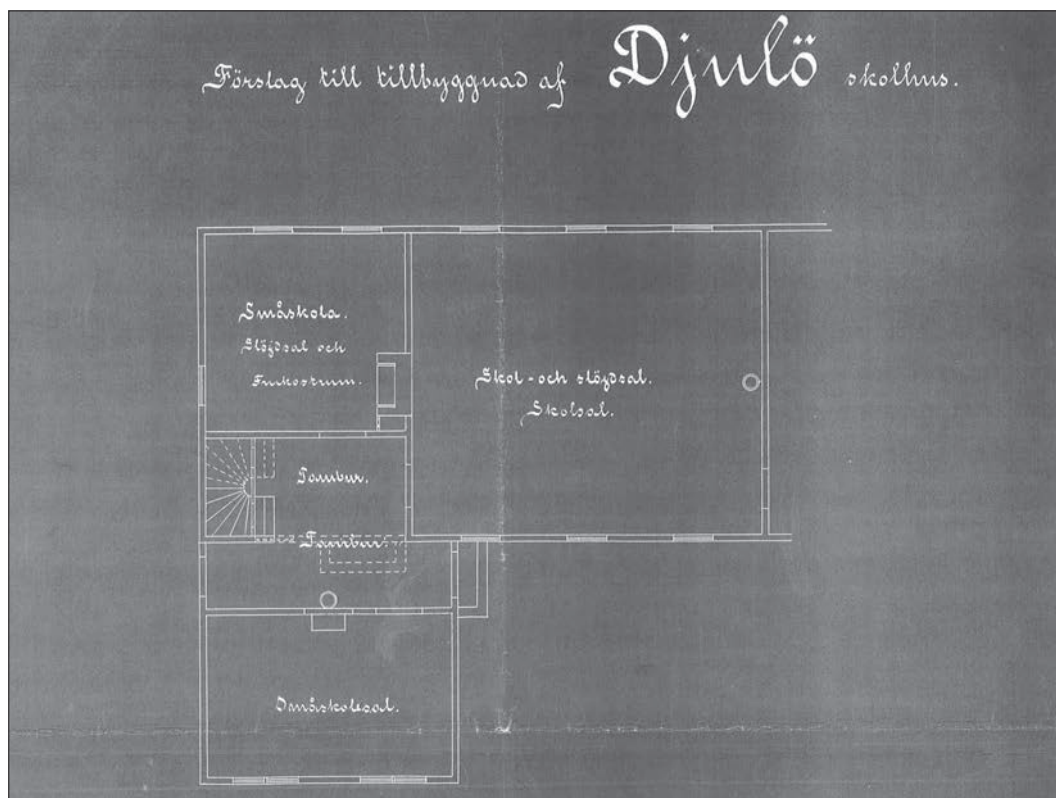 Förslag till tillbyggnad af Djulö skolhus.
Småskola.
Slöjdsal och
Frukostrum.
Skol- och slöjdsal.
Skolsal.
Tambur.
Tambur.
Småskolesal.